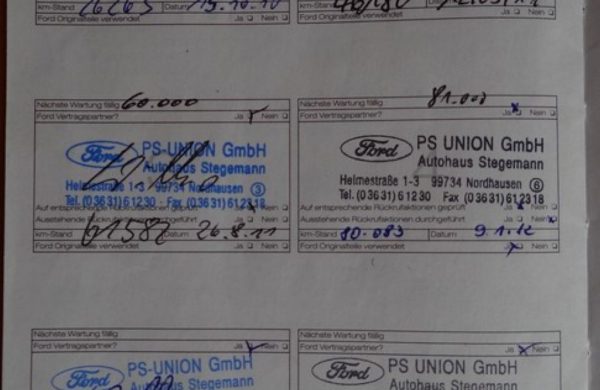 km-Stand 26265 Datum 15.10.10
km-Stand Datum
Ford Originalteile verwendet Ja Nein
Ford Originalteile verwendet Ja Nein
Nächste Wartung fällig 60.000
Ford Vertragspartner? Ja Nein
Ford PS-UNION GmbH
Autohaus Stegemann
Helmestraße 1-3 99734 Nordhausen 3
Tel. (03631) 61230 Fax (03631) 612318
Auf entsprechende Rückrufaktionen geprüft Ja Nein
Ausstehende Rückrufaktionen durchgeführt Ja Nein
km-Stand 61582 Datum 26.8.11
Ford Originalteile verwendet Ja Nein
Nächste Wartung fällig 81.000
Ford Vertragspartner? Ja Nein
Ford PS UNION GmbH
Autohaus Stegemann
Helmestraße 1-3 99734 Nordhausen 6
Tel. (03631) 61230 Fax (03631) 612318
Auf entsprechende Rückrufaktionen geprüft Ja Nein
Ausstehende Rückrufaktionen durchgeführt Ja Nein
km-Stand 80-083 Datum 9.1.12
Ford Originalteile verwendet Ja Nein
Nächste Wartung fällig
Ford Vertragspartner? Ja Nein
Ford PS-UNION GmbH
Autohaus Stegemann
Nächste Wartung fällig
Ford Vertragspartner? Ja Nein
Ford PS UNION GmbH
Autohaus Stegemann